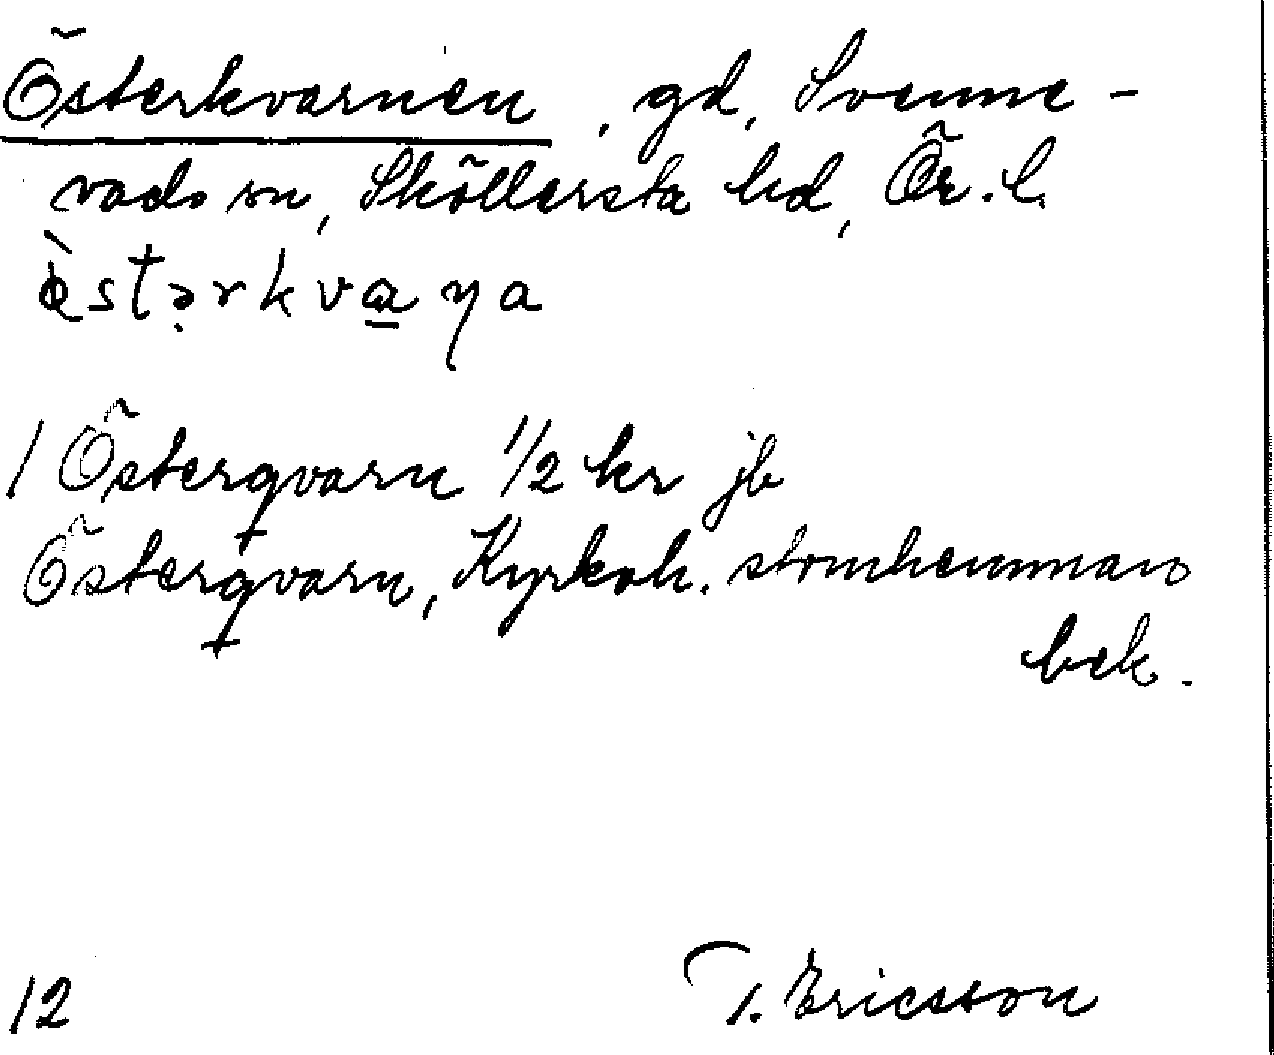 Österkvarnen, gd, Svenne-
vads sn, Sköllersta hd, Ör. l.
1 Österqvarn 1/2 kr jb
Österqvarn, Kyrkoh. stomhemmans
bek.
12 T. Ericsson